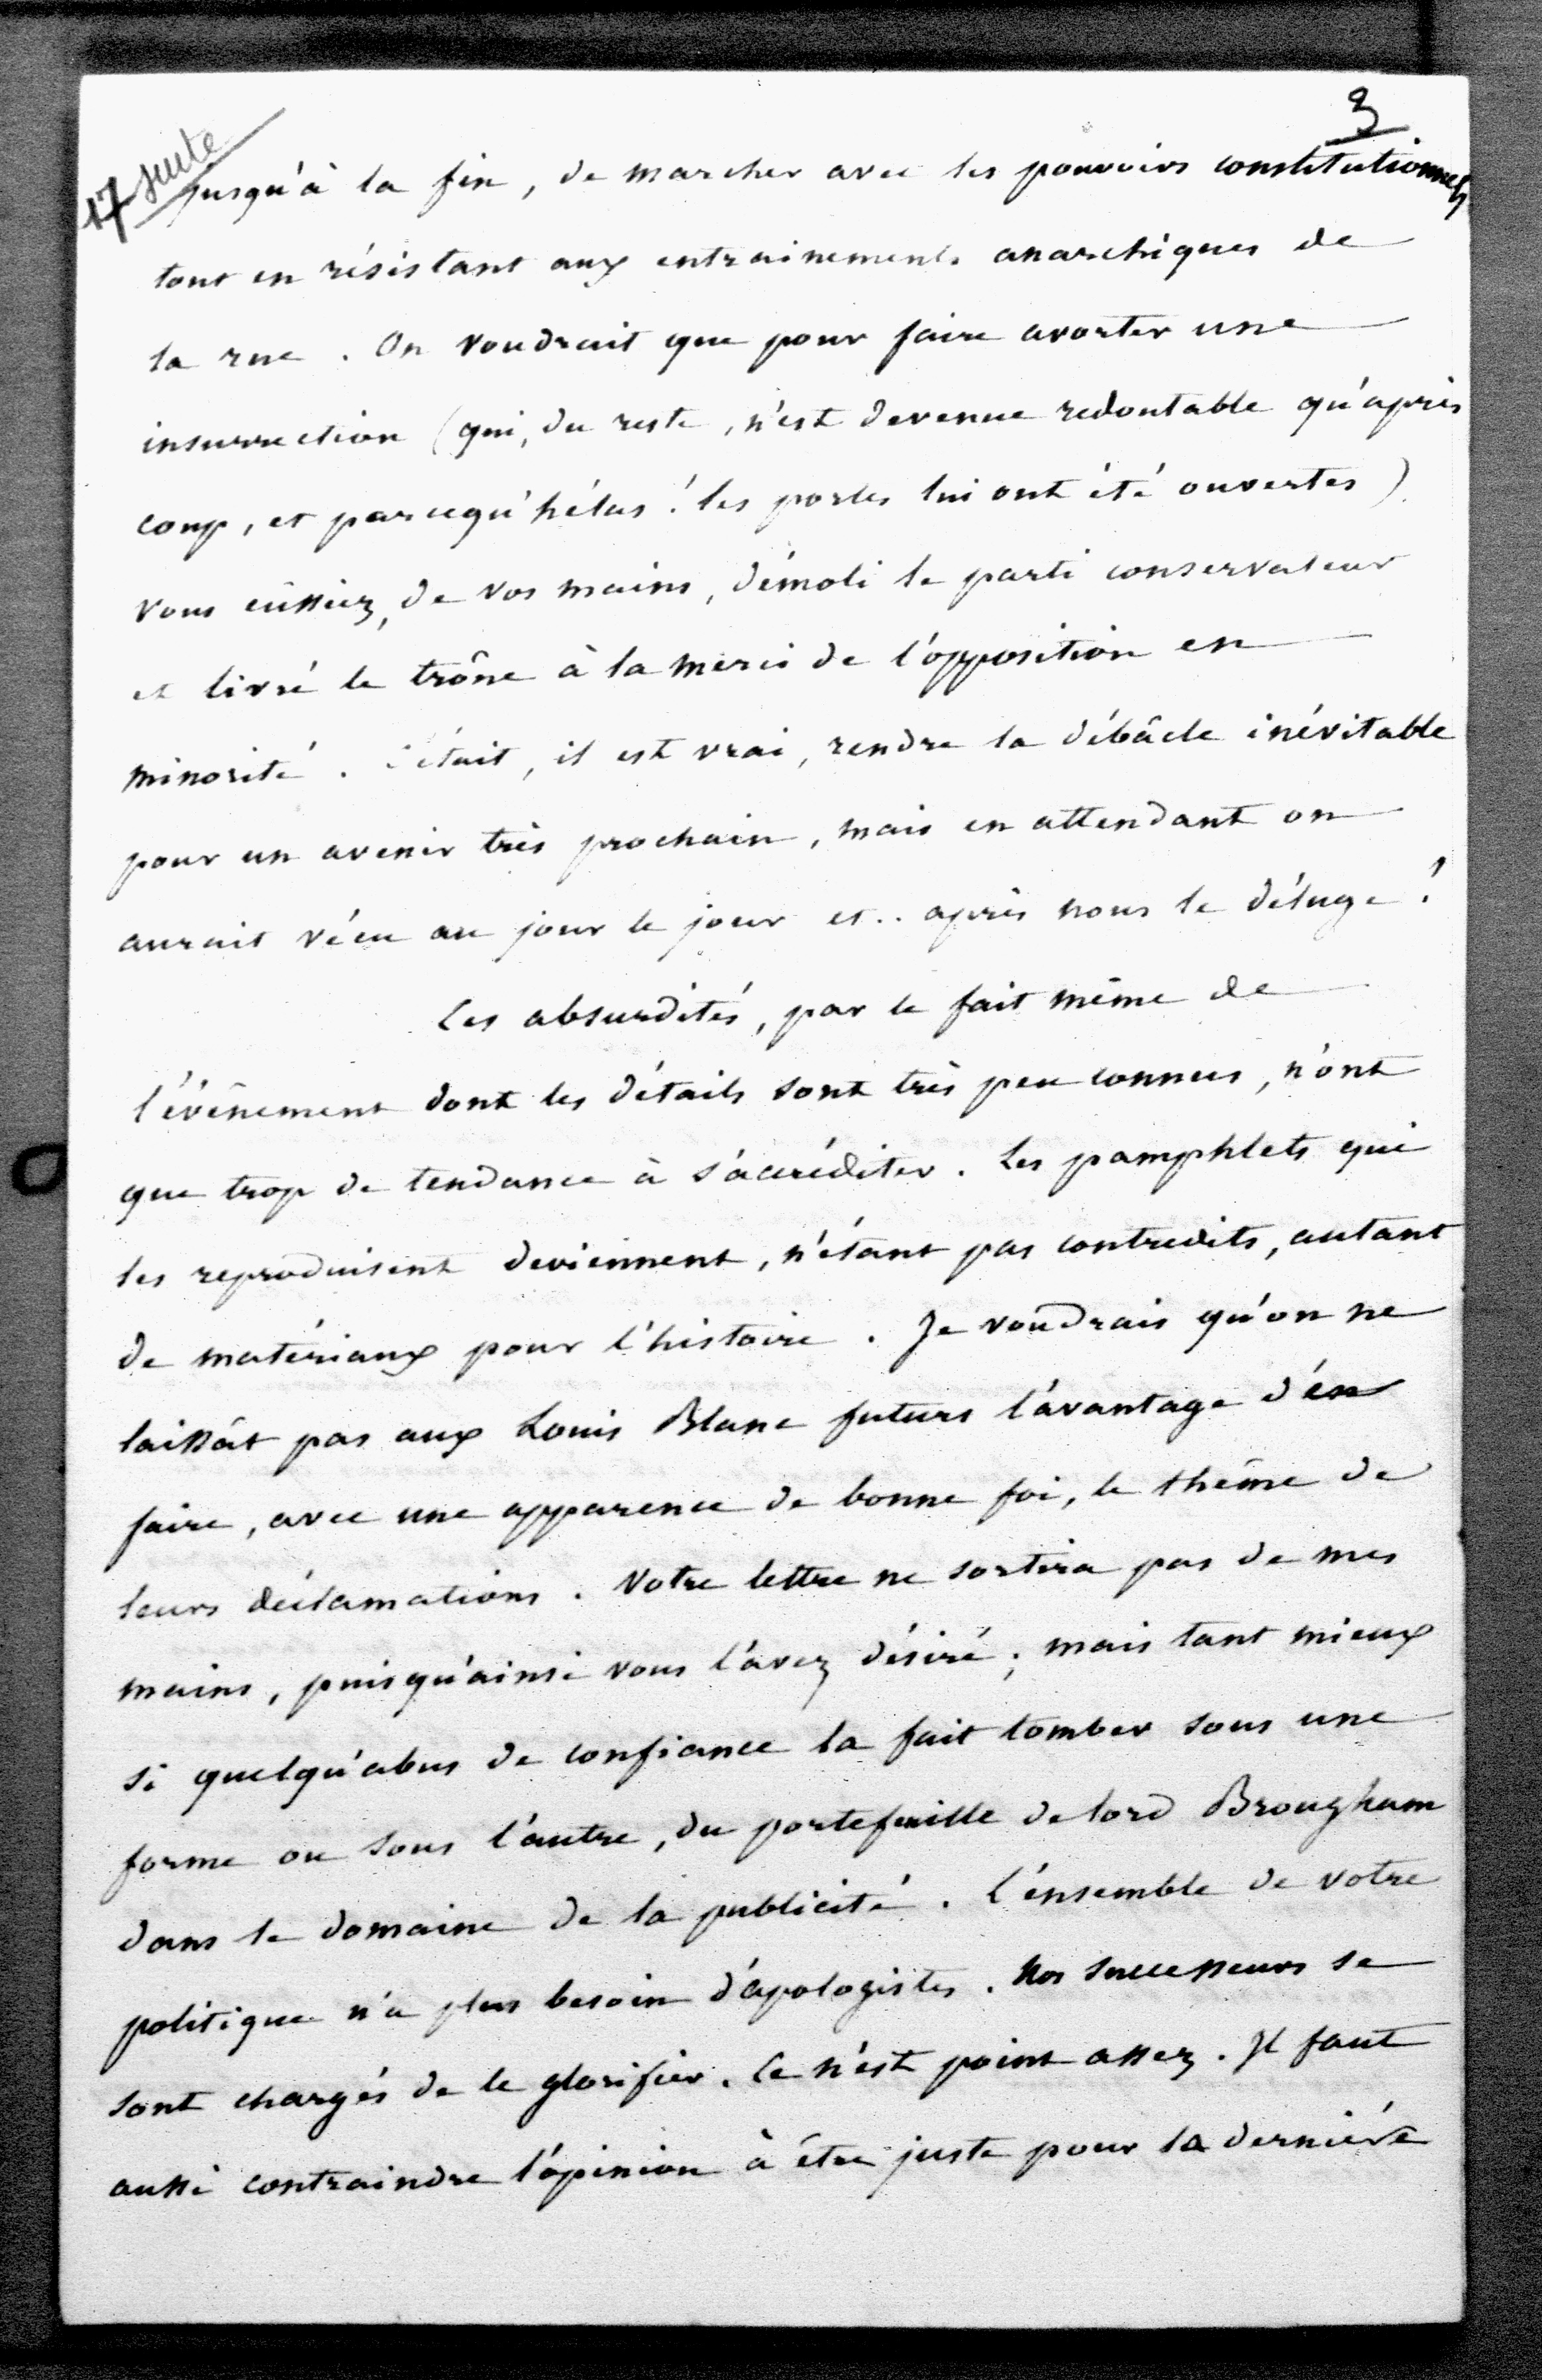 3
17 suite
jusqu'à la fin, de marcher avec les pouvoirs constitutionnels
tout en résistant aux entrainements anarchiques de
la rue. On voudrait que pour faire avorter une
insurrection (qui, du reste, n'est devenue redoutable qu'après
coup, et parcequ'hélas! les portes lui ont été ouvertes)
vous eûssiez, de vos mains, démoli le parti conservateur
et livré le trône à la merci de l'opposition en
minorité. C'était, il est vrai, rendre la débâcle inévitable
pour un avenir très prochain, mais en attendant on
aurait vécu au jour le jour et.. après nous le déluge!
Ces absurdités, par le fait même de
l'évênement dont les détails sont très peu connus, n'ont
que trop de tendance à s'accréditer. Les pamphlets qui
les reproduisent deviennent, n'étant pas contredits, autant
de matériaux pour l'histoire. Je voudrais qu'on ne
laissât pas aux Louis Blanc futurs l'avantage d'en
faire, avec une apparence de bonne foi, le thême de
leurs déclamations. Votre lettre ne sortira pas de mes
mains, puisqu'ainsi vous l'avez désiré; mais tant mieux
si quelqu'abus de confiance la fait tomber sous une
forme ou sous l'autre, du portefeuille de lord Brougham
dans le domaine de la publicité. L'ensemble de votre
politique n'a plus besoin d'apologistes. Nos successeurs se
sont chargés de le glorifier. Ce n'est point assez. Il faut
aussi contraindre l'opinion à être juste pour la dernière